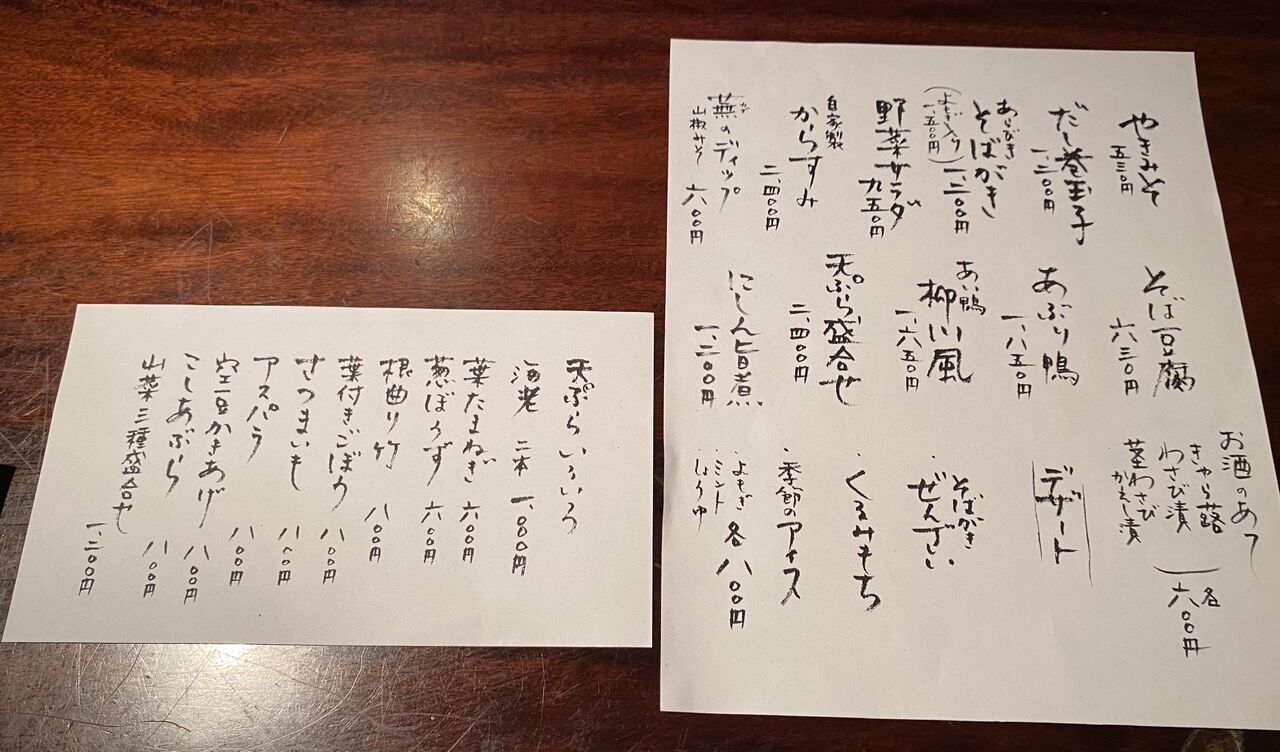 天ぷらいろいろ
海老 二本 一、〇〇〇円
葉たまねぎ 六〇〇円
葱ぼうず 六〇〇円
根曲り竹 八〇〇円
葉付きごぼう 八〇〇円
さつまいも 八〇〇円
アスパラ 八〇〇円
空豆かきあげ 八〇〇円
こしあぶら 八〇〇円
山菜三種盛合せ 一、二〇〇円
やきみそ
五三〇円
だし巻玉子
一、二〇〇円
あらびき
そばがき
一、二〇〇円
(よもぎ入り
一、五〇〇円)
野菜サラダ
九五〇円
自家製
からすみ
二、四〇〇円
蕪のディップ
かぶ
山椒みそ 六〇〇円
そば豆腐
六三〇円
あぶり鴨
一、八五〇円
あい鴨
柳川風
一、六五〇円
天ぷら盛合せ
二、四〇〇円
にしん旨煮
一、二〇〇円
お酒のあて
きゃら蕗
わさび漬
茎わさび
かえし漬
各
六〇〇円
デザート
そばがき
・ぜんざい
・くるみもち
季節のアイス
・よもぎ
・ミント
・しょうゆ
各八〇〇円